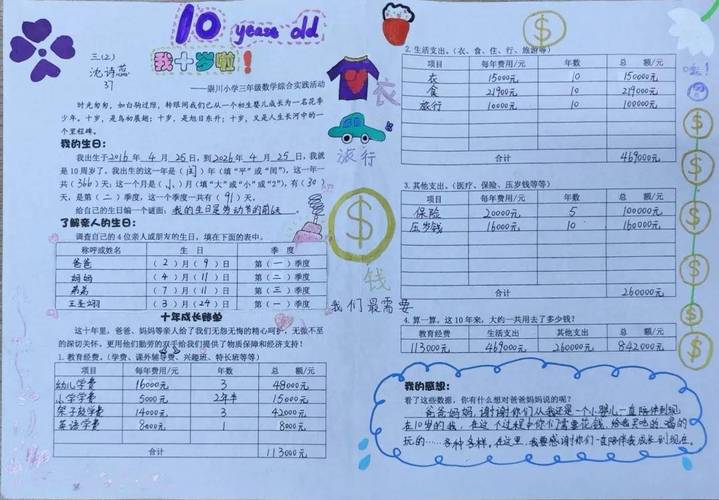 10 years old
三(2)
沈诗蕊
37
我十岁啦！
——崇川小学三年级数学综合实践活动
时光匆匆，如白驹过隙，转眼间我们已从一个初生婴儿成长为一名花季
少年。十岁，是鸟初展翅；十岁，是旭日东升；十岁，又是人生长河中的一
个里程碑。
我的生日：
我出生于2016年 4月 25日，到2026年 4月 25日，我就
是10周岁了。我出生的这一年是（闰）年（填“平”或“闰”），这一年一
共（366）天；这一个月是（小）月（填“大”或“小”或“2”），有（30）
天，是第（二）季度，这个季度一共有（91）天。
给自己的生日编一个谜面：我的生日是劳动节的前6天
了解亲人的生日：
调查自己的4位亲人或朋友的生日，填在下面的表中。
称呼或姓名 生 日 季 度
爸爸 （2）月（9）日 第（一）季度
妈妈 （4）月（11）日 第（二）季度
弟弟 （7）月（11）日 第（三）季度
（3）月（24）日 第（一）季度
十年成长账单
这十年里，爸爸、妈妈等亲人给了我们无怨无悔的精心呵护，无微不至
的深切关怀，更用他们勤劳的双手给我们提供了物质保障和经济支持！
1. 教育经费。（学费、课外辅导费、兴趣班、特长班等等）
项目 每年费用/元 年数 总 额/元
幼儿学费 16000元 3 48000元
小学学费 5000元 2年半 15000元
架子鼓学费 14000元 3 42000元
英语学费 8000元 1 8000元
合计 113000元
衣
旅行
钱
我们最需要
2. 生活支出。（衣、食、住、行、旅游等）
项目 每年费用/元 年数 总 额/元
衣 15000元 10 150000元
食 21900元 10 219000元
旅行 10000元 10 100000元
合计 469000元
3. 其他支出。（医疗、保险、压岁钱等等）
项目 每年费用/元 年数 总 额/元
保险 20000元 5 100000元
压岁钱 16000元 10 160000元
合计 260000元
4. 算一算。这10年来，大约一共用去了多少钱？
教育经费 生活支出 其他支出 总 额/元
113000元 469000元 260000元 842000元
我的感想：
看了这些数据，你有什么想对爸爸妈妈说的呢？
爸爸妈妈，谢谢你们从我还是一个小婴儿一直陪伴到现
在10岁的我，在这个过程中你们需要花钱，给我买吃的、喝的
玩的……各种各样，在这里，我要感谢你们一直陪伴我成长到现在。